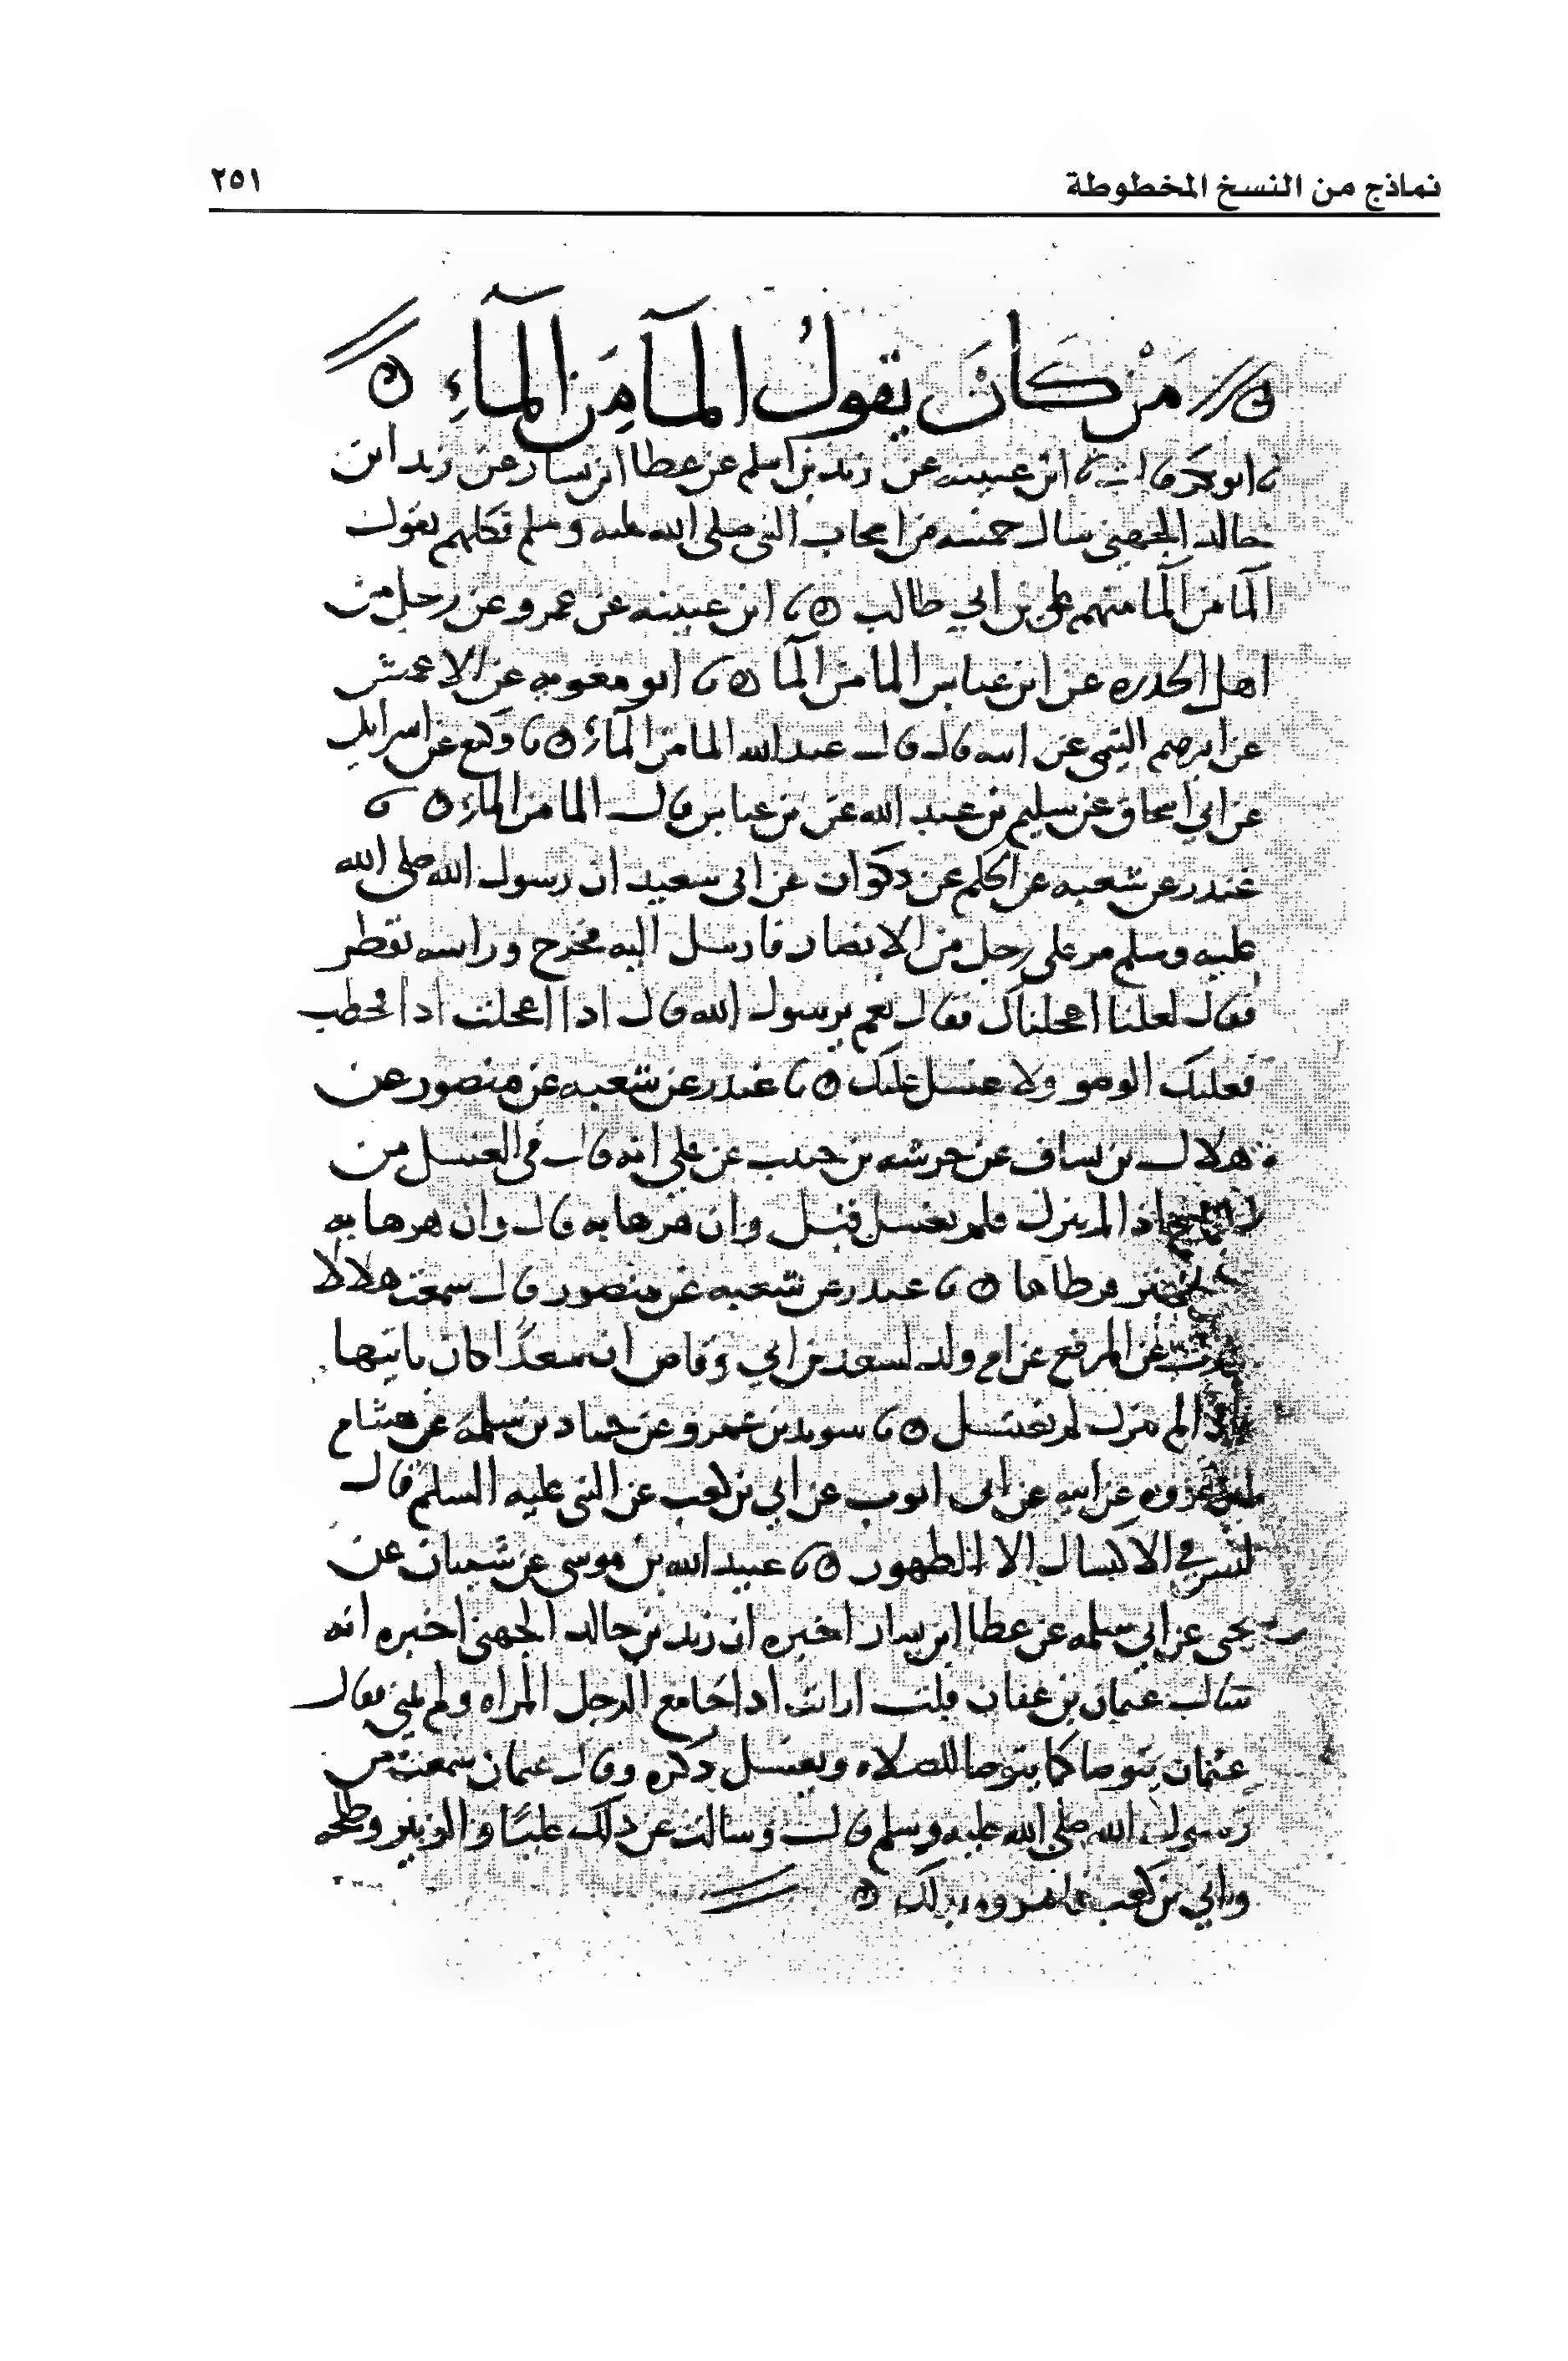 نماذج من النسخ المخطوطة ٢٥١
من كان يقول المآ من المآء
ابو بكر قال ابن عيينه عن زيد بن اسلم عن عطا ابن يسار عن زيد ابن
خالد الجهني سال خمسه من اصحاب النبي صلى الله عليه وسلم فكلهم يقول
المآ من المآ منهم علي بن ابي طالب ابن عيينه عن عمرو عن رجل من
اهل عن ابن عباس المآ من المآ ابو معويه عن الاعمش
عن ابرهيم التيمي عن ابيه قال قال عبد الله الما من المآء وكيع عن اسرايل
عن ابي اسحاق عن سليم بن عبد الله عن بن عباس قال الما من المآء
غندر عن شعبه عن الحكم عن ذكوان عن ابي سعيد ان رسول الله صلى الله
عليه وسلم مر على رجل من الانصار فارسل اليه فخرج وراسه يقطر
فقال لعلنا اعجلناك فقال نعم يرسول الله قال اذا اعجلت اذا
فعليك الوضو ولا غسل عليك غندر عن شعبه عن منصور عن
هلال بن يساف عن خرشه بن حبيب عن علي انه قال في الغسل من
اذا لم ينزل فلم يغسل قيل وان هزها به قال وان هزها به
غندر عن شعبه عن منصور قال سمعت هلالا
عن المرقع عن ام ولد لسعد بن ابي وقاص ان سعدًا كان ياتيها
فاذا لم ينزل لم يغتسل سويد بن عمرو عن حماد بن سلمه عن هشام
بن عروه عن ابيه عن ابي ايوب عن ابي بن كعب عن النبي عليه السلم قال
ليس في الاكسال الا الطهور عبيد الله بن موسى عن شيبان عن
يحيى عن ابي سلمه عن عطا ابن يسار اخبره ان زيد بن خالد الجهني اخبره انه
سال عثمان بن عفان قلت ارايت اذا جامع الرجل المراه ولم يمني فقال
عثمان يتوضا كما يتوضا للصلاه ويغسل ذكره وقال عثمان سمعته من
رسول الله صلى الله عليه وسلم قال وسالت عن ذلك عليًا والزبير وطلحه
وابي بن كعب فامروه بذلك